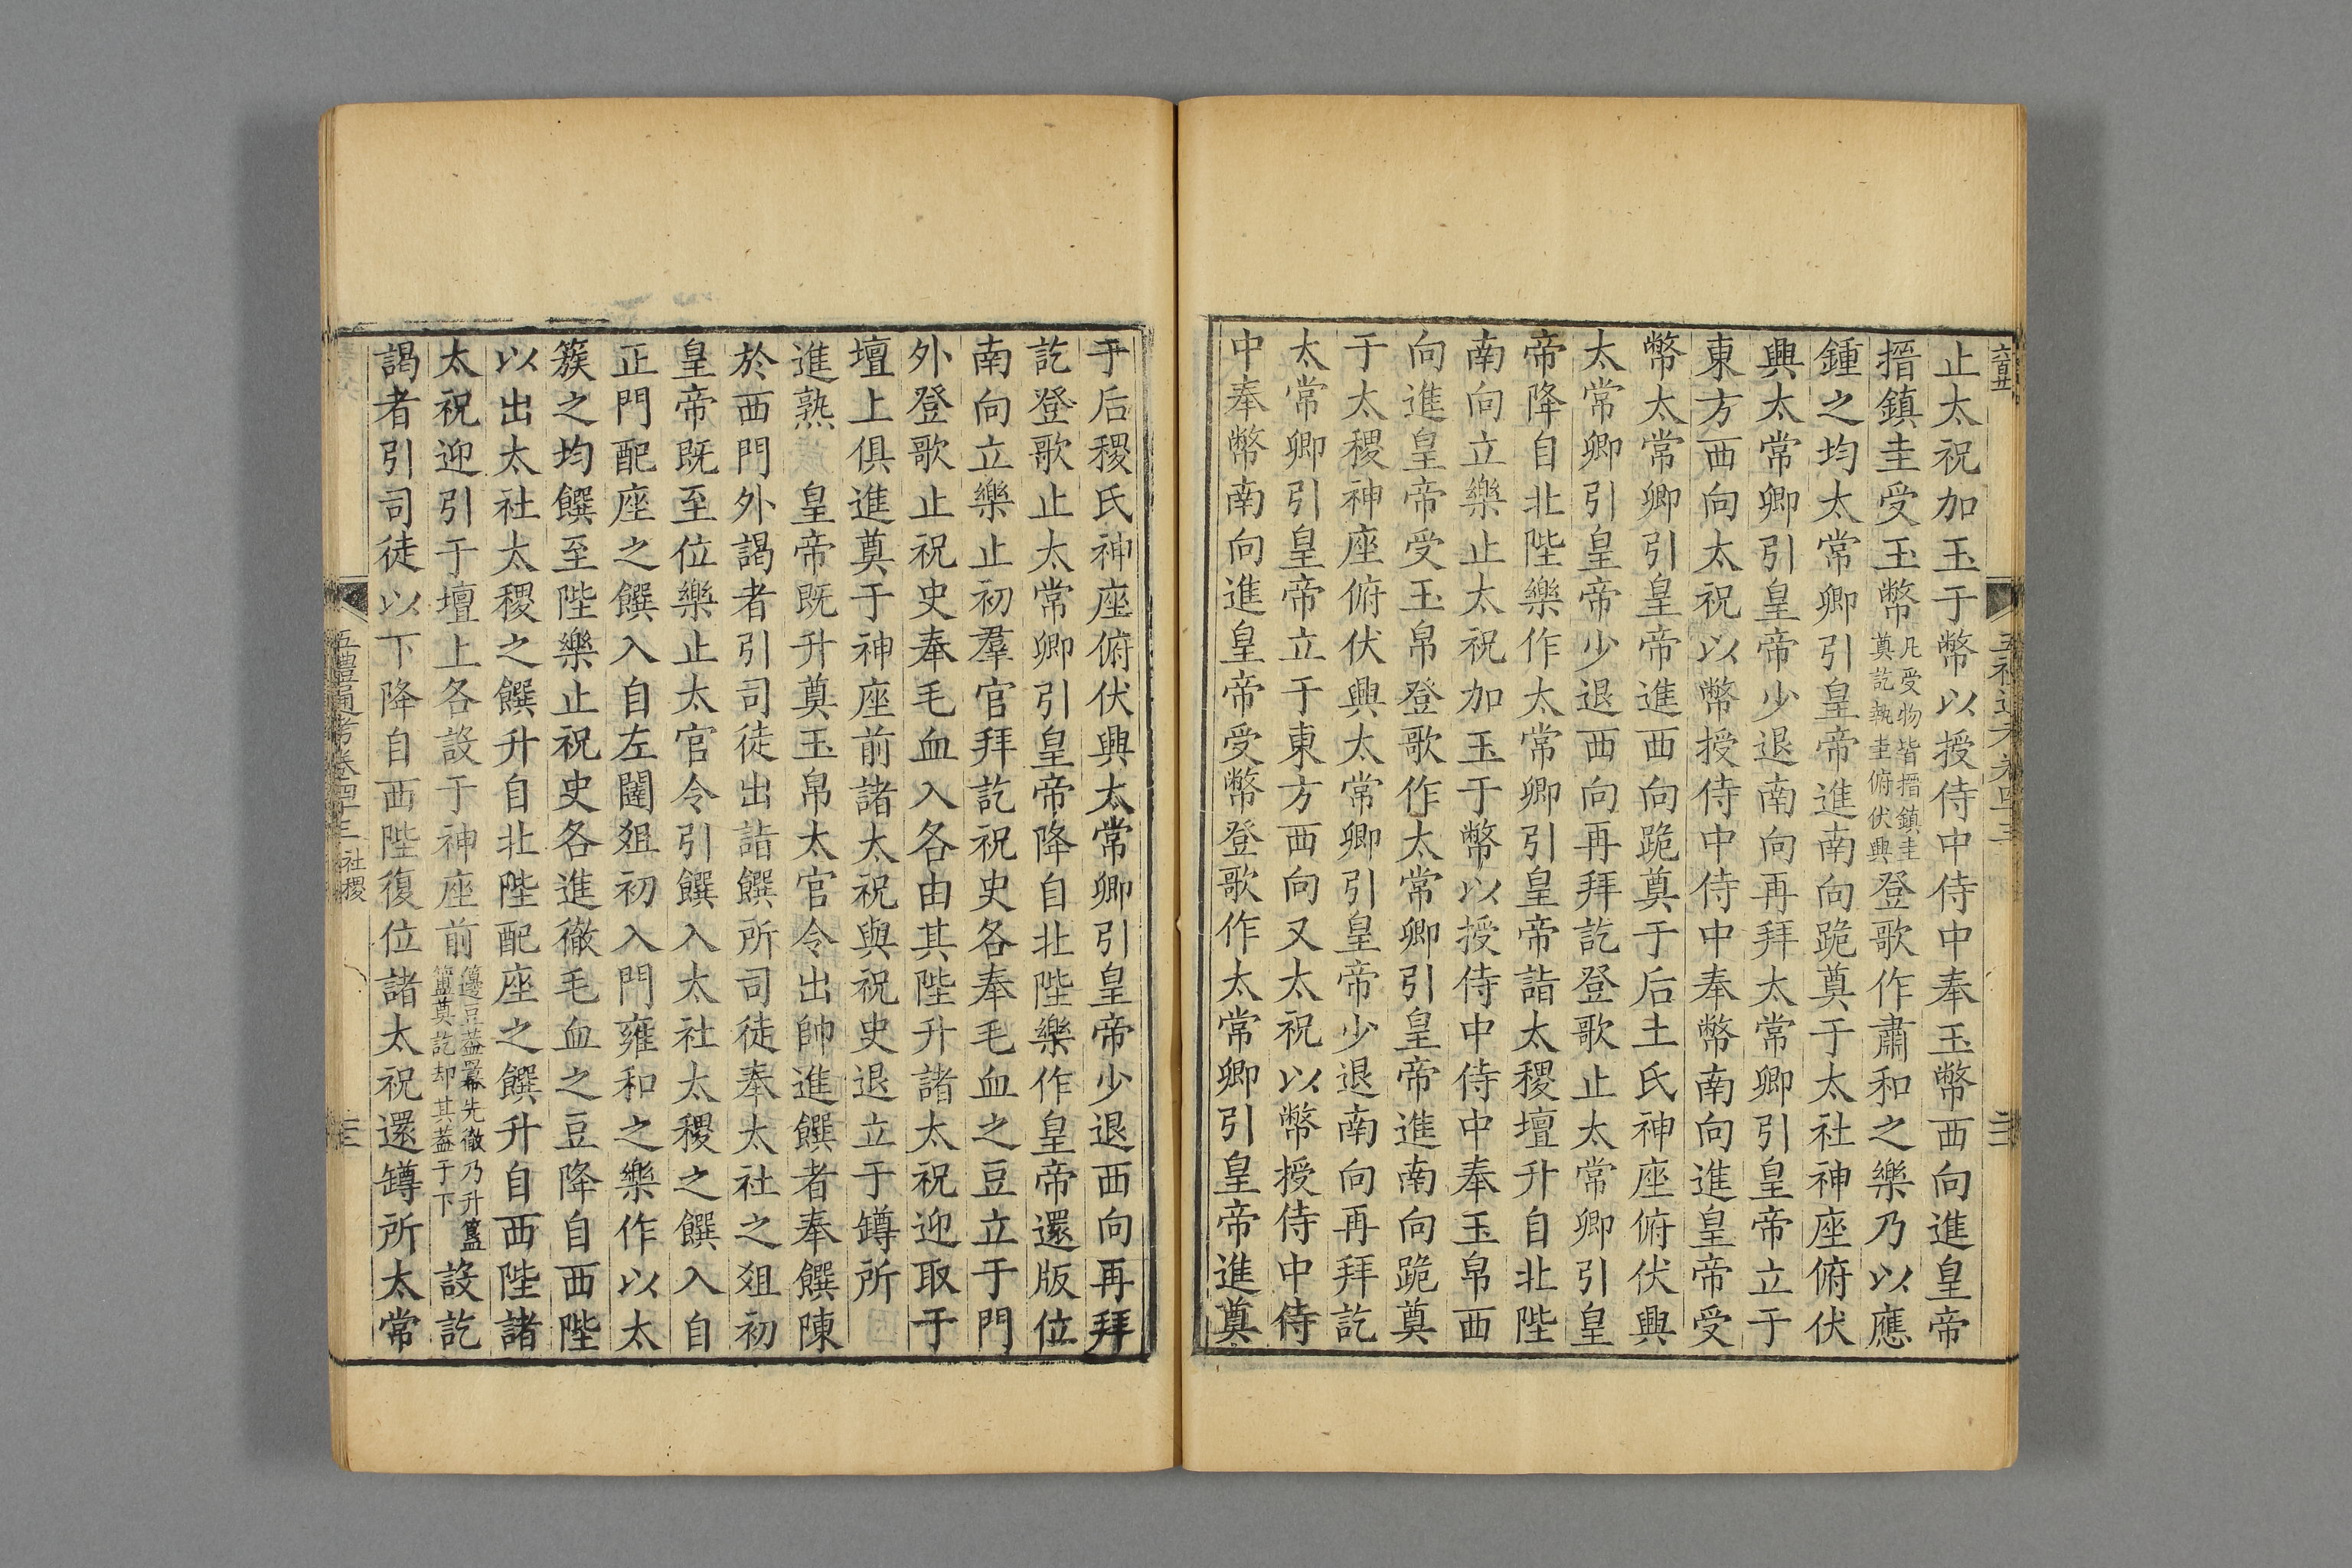 止太祝加玉于幣以授侍中侍中奉玉幣西向進皇帝
搢鎮圭受玉幣凡受物皆搢鎮圭奠訖執圭俯伏興登歌作肅和之樂乃以應
鍾之均太常卿引皇帝進南向跪奠于太社神座俯伏
興太常卿引皇帝少退南向再拜太常卿引皇帝立于
東方西向太祝以幣授侍中侍中奉幣南向進皇帝受
幣太常卿引皇帝進西向跪奠于后土氏神座俯伏興
太常卿引皇帝少退西向再拜訖登歌止太常卿引皇
帝降自北陛樂作太常卿引皇帝詣太稷壇升自北陛
南向立樂止太祝加玉于幣以授侍中侍中奉玉帛西
向進皇帝受玉帛登歌作太常卿引皇帝進南向跪奠
于太稷神座俯伏興太常卿引皇帝少退南向再拜訖
太常卿引皇帝立于東方西向又太祝以幣授侍中侍
中奉幣南向進皇帝受幣登歌作太常卿引皇帝進奠
于后稷氏神座俯伏興太常卿引皇帝少退西向再拜
訖登歌止太常卿引皇帝降自北陛樂作皇帝還版位
南向立樂止初羣官拜訖祝史各奉毛血之豆立于門
外登歌止祝史奉毛血入各由其陛升諸太祝迎取于
壇上俱進奠于神座前諸太祝與祝史退立于罇所
進熟 皇帝既升奠玉帛太官令出帥進饌者奉饌陳
於西門外謁者引司徒出詣饌所司徒奉太社之俎初
皇帝既至位樂止太官令引饌入太社太稷之饌入自
正門配座之饌入自左闥俎初入門雍和之樂作以太
簇之均饌至陛樂止祝史各進徹毛血之豆降自西陛
以出太社太稷之饌升自北陛配座之饌升自西陛諸
太祝迎引于壇上各設于神座前籩豆蓋冪先徹乃升簠簋奠訖却其蓋于下設訖
謁者引司徒以下降自西陛復位諸太祝還罇所太常
五禮通考卷四十三 社稷